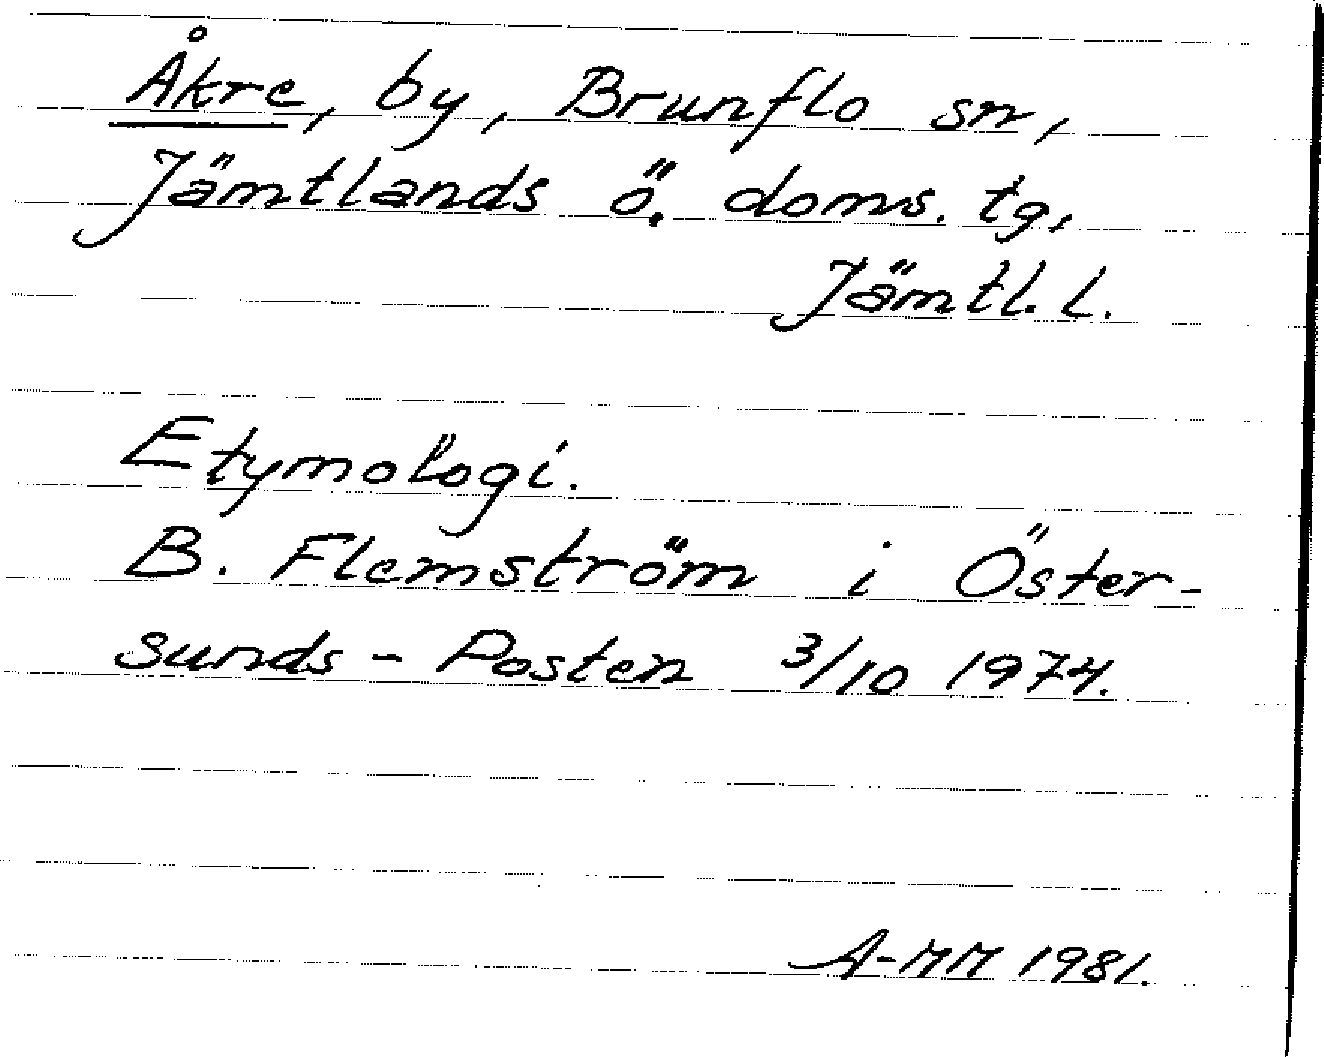 Åkre, by, Brunflo sn,
Jämtlands ö. doms. tg,
Jämtl. l.
Etymologi.
B. Flemström i Öster-
sunds-Posten 3/10 1974.
A-MM 1981.